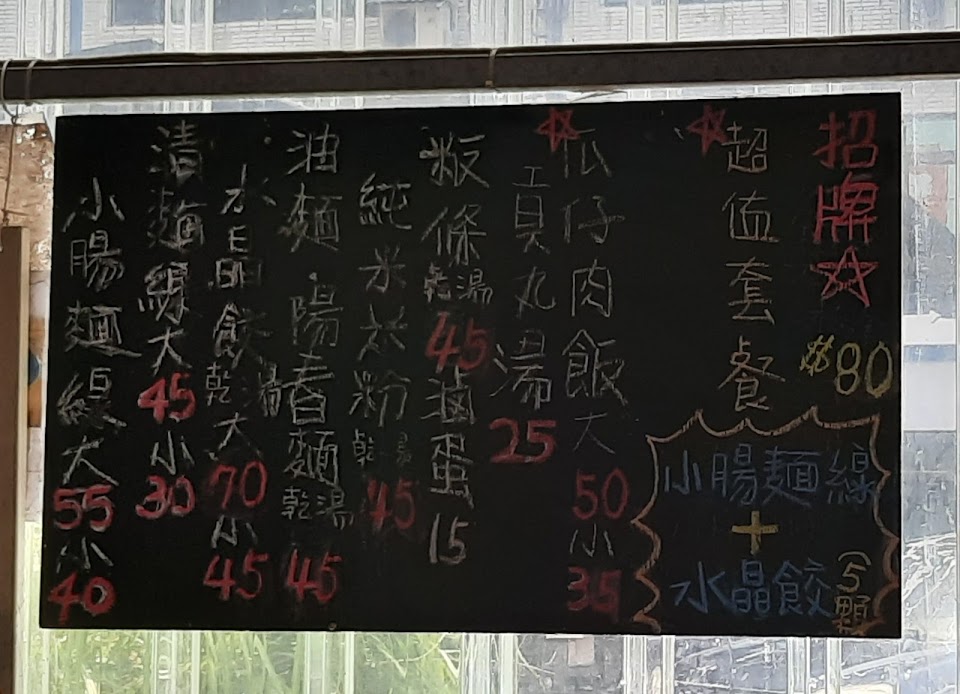 招牌☆
$80
超值套餐
小腸麵線
+
水晶餃(5顆)
瓜仔肉飯大50小35
貢丸湯25
粄條乾湯45
滷蛋15
純米米粉乾湯45
油麵.陽春麵乾湯45
水晶餃乾湯大70小45
清麵線大45小30
小腸麵線大55小40